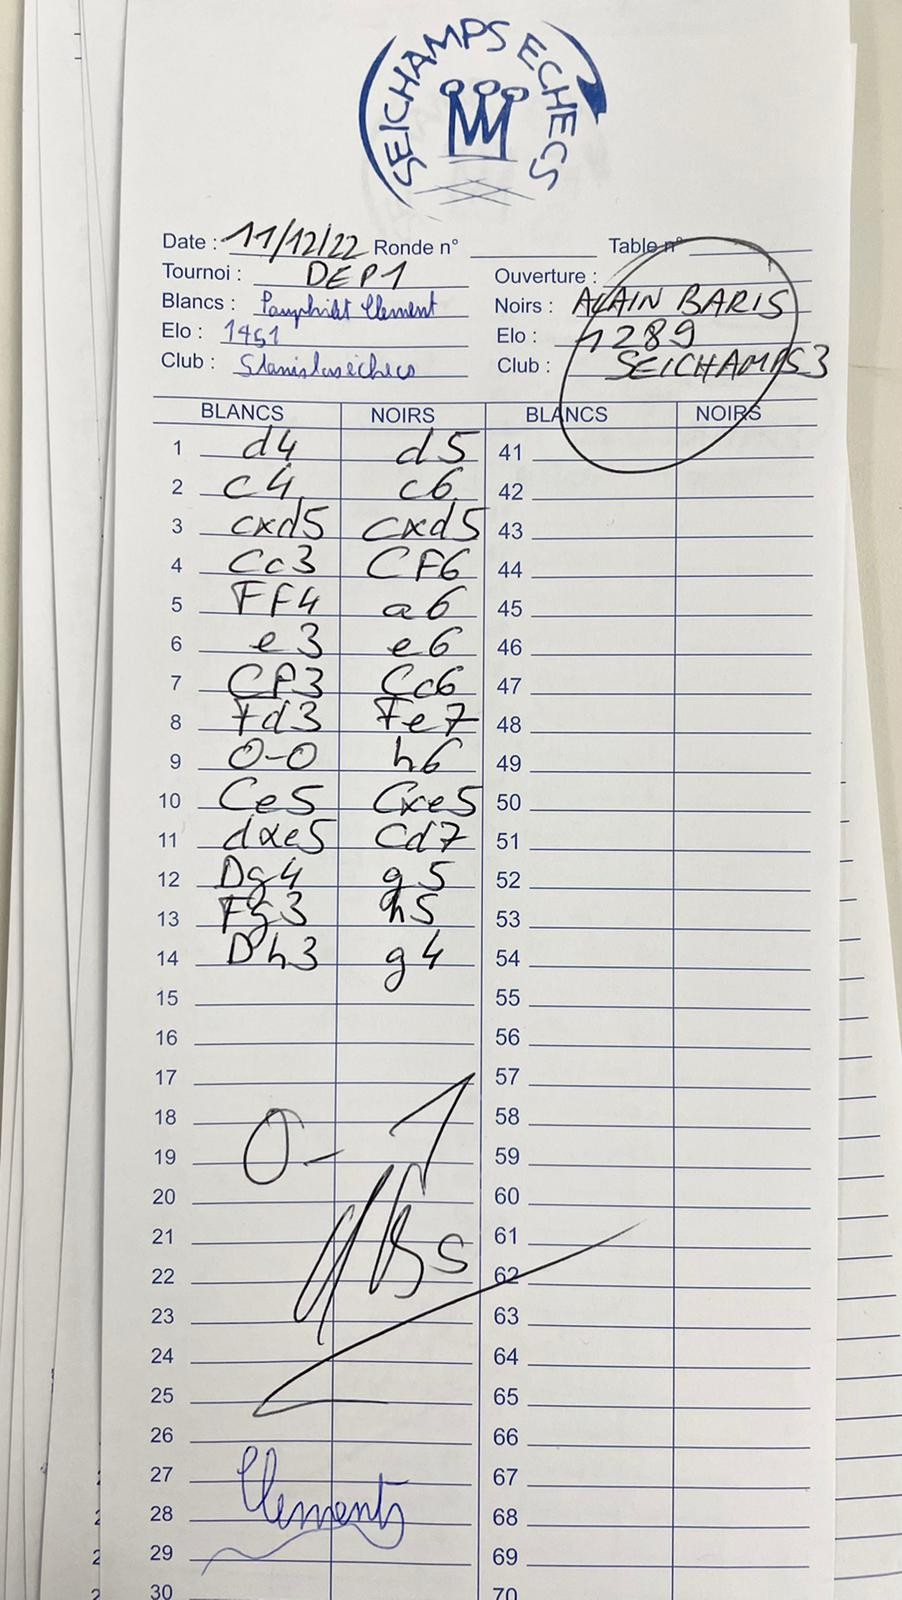 SEICHAMPS ECHECS
Date : 11/12/22 Ronde n° Table n°
Tournoi : DEP1 Ouverture :
Blancs : Pamphilet Clement Noirs : ALAIN BARIS
Elo : 1451 Elo : 1289
Club : Stanislas échecs Club : SEICHAMPS 3
BLANCS NOIRS BLANCS NOIRS
1 d4 d5 41
2 c4 c6 42
3 cxd5 cxd5 43
4 Cc3 CF6 44
5 FF4 a6 45
6 e3 e6 46
7 CF3 Cc6 47
8 Fd3 Fe7 48
9 O-O h6 49
10 Ce5 Cxe5 50
11 dxe5 Cd7 51
12 Dg4 g5 52
13 Fg3 h5 53
14 Dh3 g4 54
15 55
16 56
17 57
18 58
19 0-1 59
20 60
21 61
22 62
23 63
24 64
25 65
26 66
27 67
28 Clement 68
29 69
30 70